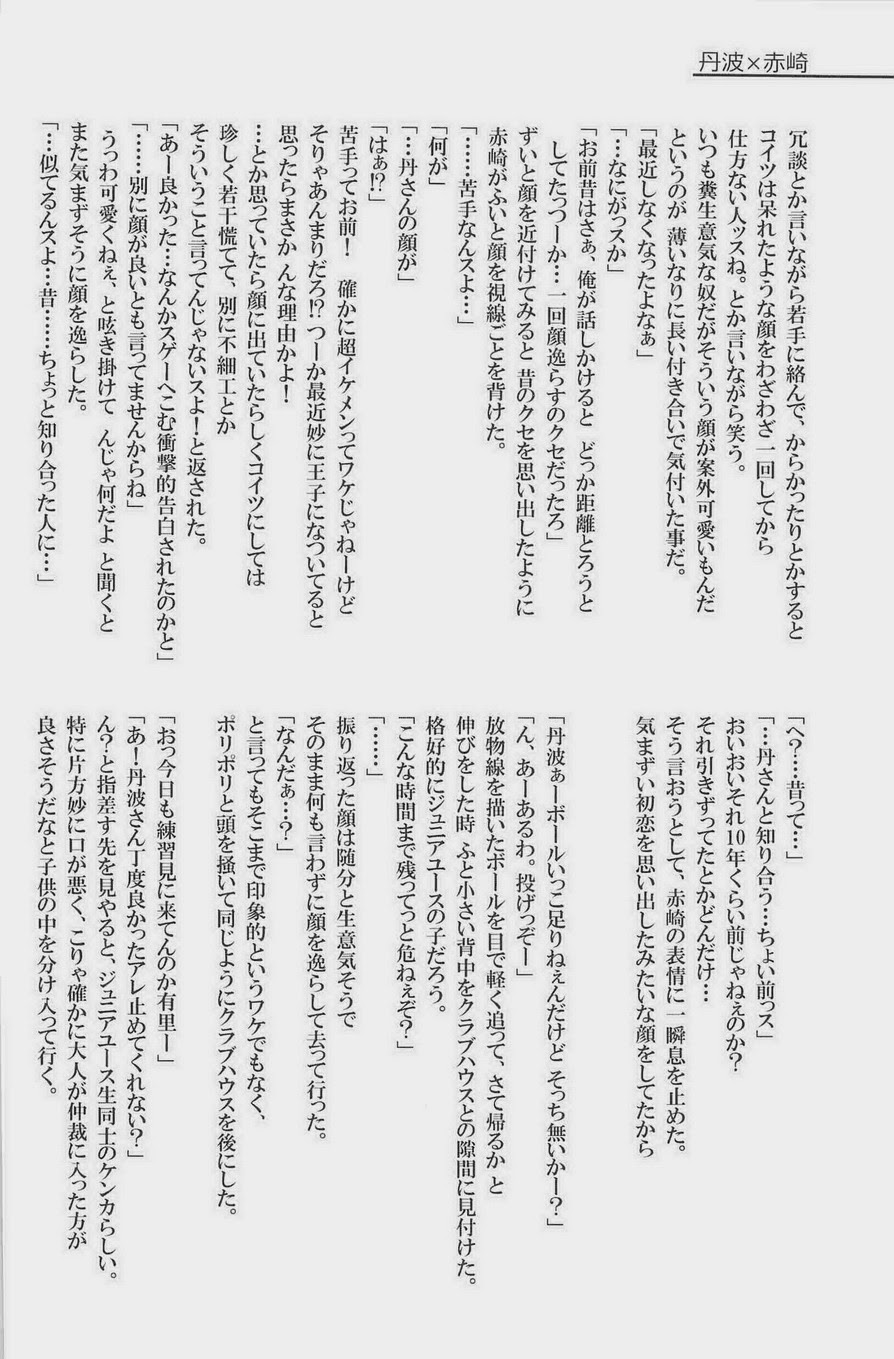 丹波×赤崎
冗談とか言いながら若手に絡んで、からかったりとかすると
コイツは呆れたような顔をわざわざ一回してから
仕方ない人ッスね。とか言いながら笑う。
いつも糞生意気な奴だがそういう顔が案外可愛いもんだ
というのが 薄いなりに長い付き合いで気付いた事だ。
「最近しなくなったよなぁ」
「…なにがっスか」
「お前昔はさぁ、俺が話しかけると どっか距離とろうと
してたっつーか…一回顔逸らすのクセだったろ」
ずいと顔を近付けてみると 昔のクセを思い出したように
赤崎がふいと顔を視線ごとを背けた。
「……苦手なんスよ…」
「何が」
「…丹さんの顔が」
「はぁ!?」
苦手ってお前！ 確かに超イケメンってワケじゃねーけど
そりゃあんまりだろ!? つーか最近妙に王子になついてると
思ったらまさか んな理由かよ！
…とか思っていたら顔に出ていたらしくコイツにしては
珍しく若干慌てて、別に不細工とか
そういうこと言ってんじゃないスよ！と返された。
「あー良かった…なんかスゲーへこむ衝撃的告白されたのかと」
「……別に顔が良いとも言ってませんからね」
うっわ可愛くねぇ、と呟き掛けて んじゃ何だよ と聞くと
また気まずそうに顔を逸らした。
「…似てるんスよ…昔……ちょっと知り合った人に…」
「へ?……昔って…」
「…丹さんと知り合う…ちょい前っス」
おいおいそれ10年くらい前じゃねぇのか？
それ引きずってたとかどんだけ…
そう言おうとして、赤崎の表情に一瞬息を止めた。
気まずい初恋を思い出したみたいな顔をしてたから
「丹波ぁーボールいっこ足りねぇんだけど そっち無いかー？」
「ん、あーあるわ。投げっぞー」
放物線を描いたボールを目で軽く追って、さて帰るか と
伸びをした時 ふと小さい背中をクラブハウスとの隙間に見付けた。
格好的にジュニアユースの子だろう。
「こんな時間まで残ってっと危ねぇぞ？」
「……」
振り返った顔は随分と生意気そうで
そのまま何も言わずに顔を逸らして去って行った。
「なんだぁ…？」
と言ってもそこまで印象的というワケでもなく、
ポリポリと頭を掻いて同じようにクラブハウスを後にした。
「おっ今日も練習見に来てんのか有里ー」
「あ！丹波さん丁度良かったアレ止めてくれない？」
ん？と指差す先を見やると、ジュニアユース生同士のケンカらしい。
特に片方妙に口が悪く、こりゃ確かに大人が仲裁に入った方が
良さそうだなと子供の中を分け入って行く。